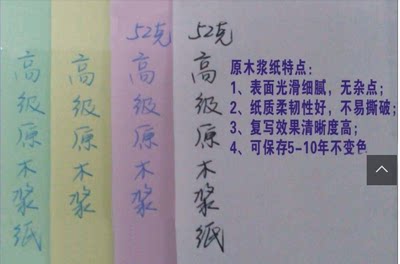 高级原木浆纸
高级原木浆
52克高级原木浆
52克高级原木浆纸
原木浆纸特点：
1、表面光滑细腻，无杂点；
2、纸质柔韧性好，不易撕破；
3、复写效果清晰度高；
4、可保存5-10年不变色